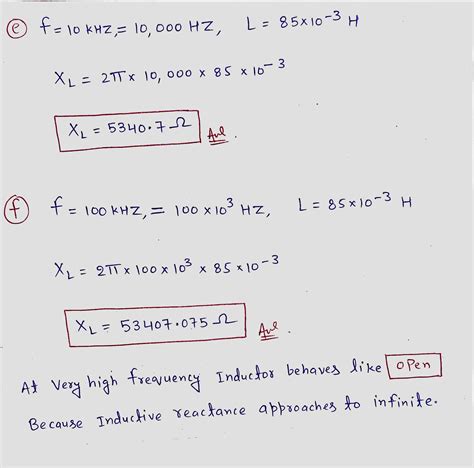 (e) f = 10 KHZ, = 10,000 HZ, L = 85×10⁻³ H
X_L = 2π × 10,000 × 85 × 10⁻³
X_L = 5340.7 Ω Ans.
(f) f = 100 KHZ, = 100 ×10³ HZ, L = 85×10⁻³ H
X_L = 2π × 100 × 10³ × 85 ×10⁻³
X_L = 53407.075 Ω Ans.
At Very high frequency Inductor behaves like open
Because Inductive reactance approaches to infinite.